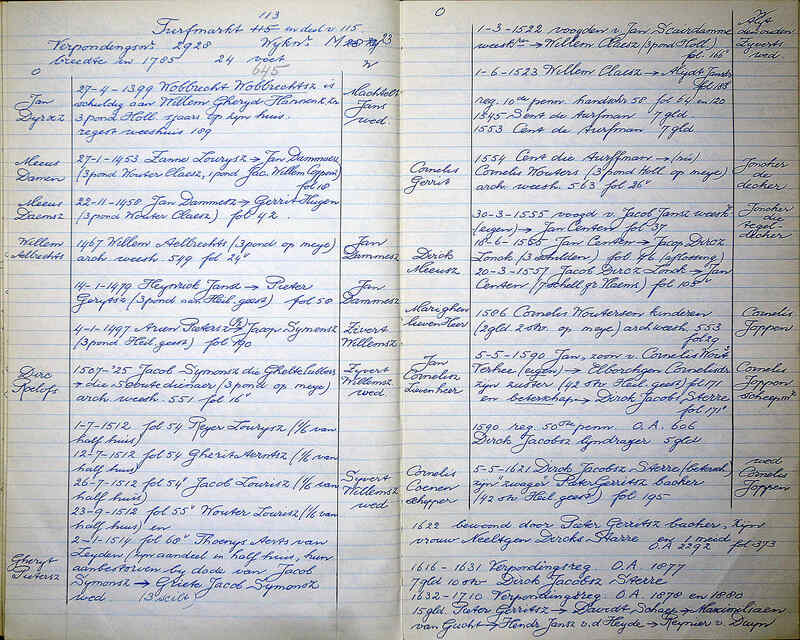 113
Turfmarkt 115 in deel v. 115
Verpondingsnr 2928 Wijknr M 83
breedte in 1785 24 voet
645
O
W
Jan
Dyrxz
27-4-1399 Wobbrecht Wobbrechtsz is
schuldig aan Willem Gheryd Hannenz zn
3 pond Holl. sjaars op zijn huis.
regest weeshuis 109
Machtelt
Jans
wed.
Meeus
Damen
27-1-1453 Lourysz → Jan Dammesz
(3 pond Wouter Claesz, 1 pond Jac. Willem Coppin)
fol 18
Meeus
Daemsz
22-11-1458 Jan Dammesz → Gerrit Hugen
(3 pond Wouter Claesz) fol 42.
Willem
Aelbrechts
1467 Willem Aelbrechts (3 pond op meye)
arch weesh. 549 fol 24v
Jan
Dammesz
14-1-1479 Heynrick Jansz → Pieter
Gerytsz (3 pond aan Heil. geest) fol 50
Jan
Dammesz
4-1-1497 Aren Pietersz → Jacop Symonsz
(3 pond Heil. geest) fol 190
Eivert
Willemsz
Dirc
Roelofs
1507-'25 Jacob Symonsz die Ghelte
→ die scoutedienaer (3 pond op meye)
arch. weesh. 551 fol 16v
Eyvert
Willemsz
wed
1-7-1512 fol 54 Reyer Lourysz (1/6 van
half huis)
12-7-1512 fol 54 Gherit Aerntsz (1/6 van
half huis)
26-7-1512 fol 54v Jacob Lourisz (1/6 van
half huis)
23-9-1512 fol 55v Wouter Lourisz (1/6 van
half huis) en
Syvert
Willemsz
wed
Gheryt
Pietersz
2-1-1514 fol 60v Thoenys Aerts van
Leyden (zijn aandeel in half huis, hun
aanbestorven bij dode van Jacob
Symonsz → Griete Jacob Symonsz
wed (3 scilt)
O
1-3-1522 voogden v. Jan Scaerdamme
weeskn → Willem Claesz (3 pond Holl.)
fol. 166v
Alijt
den ouden
Zyverts
wed
1-6-1523 Willem Claesz → Alydt Jansdr
fol 188
reg. 10de penn. handschr 50 fol 64 en 120
1545 Dent de Aurfman 7 gld
1553 Cent de Aurfman 7 gld
Cornelis
Gerrit
1554 Cent die Aurffman →
Cornelis Wouters (3 pond Holl op meye)
arch. weesh. 563 fol 26v
Joncher
de
decker
30-3-1555 voogd v. Jacob Jansz weeskn
(eigen) → Jan Centen fol 37
Joncher
die
tegel-
decker
Dirck
Meeusz
18-6-1565 Jan Centen → Jacop Dircz
Lonck (3 schilden) fol 96 (aflossing)
20-3-1557 Jacob Dircz Lonck → Jan
Centen (7 schell. gr Vlaems) fol 105v
Marighen
lieven Heer
1586 Cornelis Woutersen kinderen
(2 gld. 2 str. op meye) arch weesh. 553
fol 29
Cornelis
Joppen
Jan
Cornelisz
Lievenheer
5-5-1590 Jan, zoon v. Cornelis Wouts
Terhee (eigen) → Elborchgen Cornelisdr
zijn zuster (42 str Heil. geest) fol 171
en beterschap → Dirck Jacobs Sterre
fol 171v
Cornelis
Joppen
scheepm
1590 reg. 50ste penn. O.A. 606
Dirck Jacobsz lyndrager 5 gld
Cornelis
Coenen
schipper
5-5-1621 Dirck Jacobsz Sterre (betersch.)
zijn zwager Pieter Gerritsz backer
(42 str Heil. geest) fol 195
wed
Cornelis
Joppen
1622 bewoond door Pieter Gerritsz backer, zijn
vrouw Neeltgen Dircks Sterre en 1 meid
O.A 2292 fol 373
1616 - 1631 Verpondingsreg. O.A. 1877
7 gld 10 str Dirck Jacobsz Sterre
1632-1710 Verpondingsreg. O.A. 1878 en 1880
15 gld. Pieter Gerritsz → Davidt Schaep → Maximeliaen
van Gucht → Hendr. Jansz v.d. Heyde → Reynier v. Duyn